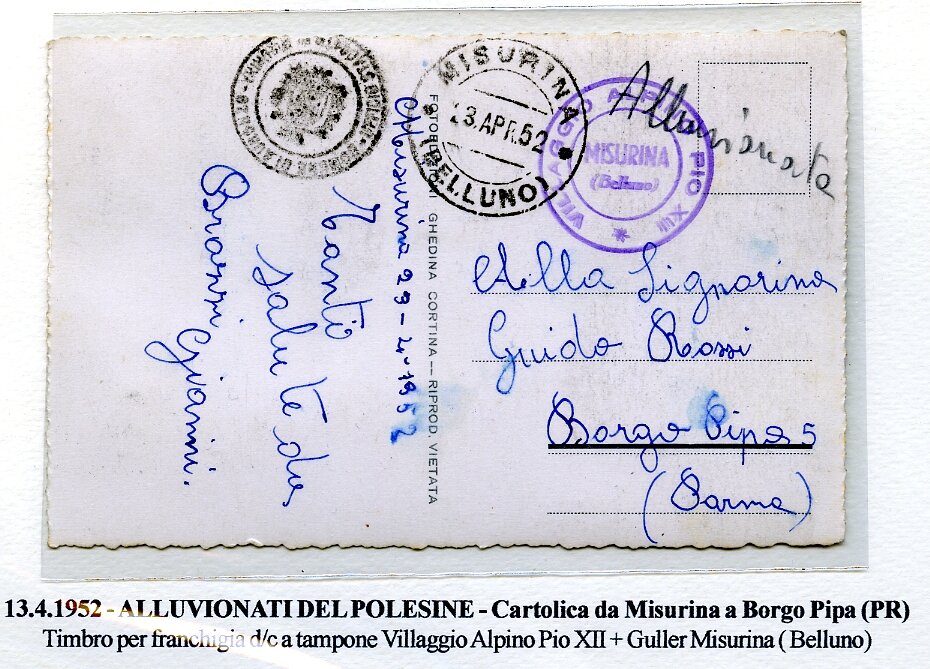 MISURINA
23.APR.52
(BELLUNO)
VILLAGGIO ALPINO PIO XII
MISURINA
(Belluno)
Alluvionata
Misurina 29-4-1952
Tanto
salute da
Gianni.
GHEDINA CORTINA — RIPROD. VIETATA
Alla Signorina
Guido Rossi
Borgo Pipa 5
(Parma)
13.4.1952 - ALLUVIONATI DEL POLESINE - Cartolica da Misurina a Borgo Pipa (PR)
Timbro per franchigia d/c a tampone Villaggio Alpino Pio XII + Guller Misurina ( Belluno)